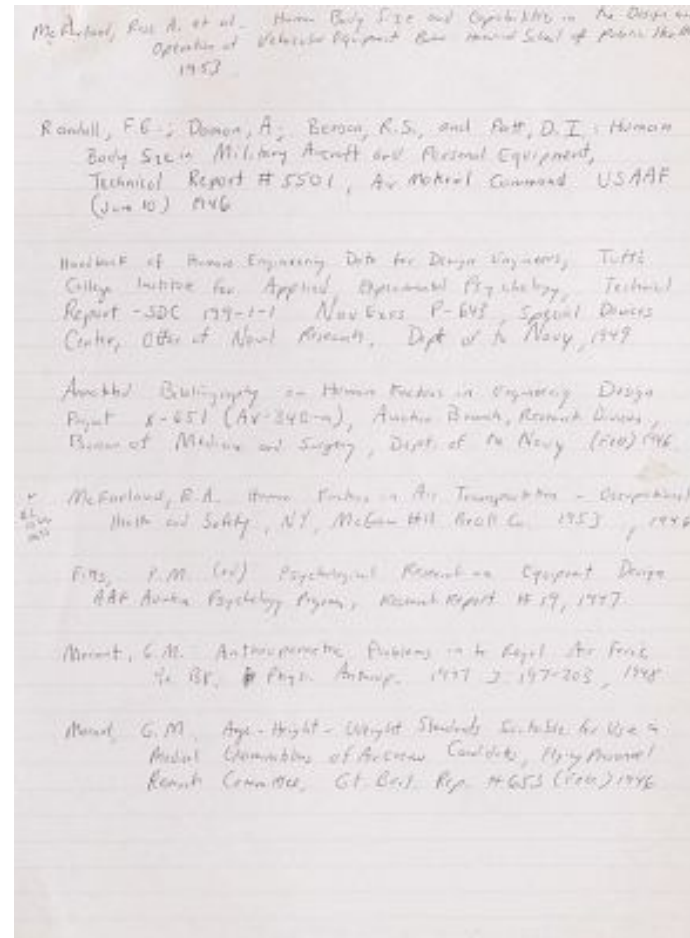 McFarland, Ross A. et al. Human Body Size and Capabilities in the Design and
Operation of Vehicular Equipment Harvard School of Public Health
1953
Randall, F.E.; Damon, A; Benton, R.S., and Patt, D.I; Human
Body Size in Military Aircraft and Personal Equipment,
Technical Report # 5501, Air Materiel Command USAAF
(June 10) 1946
Handbook of Human Engineering Data for Design Engineers, Tufts
College Institute for Applied, Experimental Psychology, Technical
Report - SDC 199-1-1 NavExos P-643, Special Devices
Center, Office of Naval Research, Dept of the Navy, 1949
Annotated Bibliography on Human Factors in Engineering Design
Project X-651 (AV-340-a), Aviation Branch, Research Division,
Bureau of Medicine and Surgery, Dept. of the Navy (Feb) 1946
McFarland, R.A. Human Factors in Air Transportation - Occupational
Health and Safety, NY, McGraw Hill Book Co. 1953, 1946
Fitts, P.M. (ed) Psychological Research on Equipment Design
AAF Aviation Psychology Program, Research Report # 19, 1947
Morant, G.M. Anthropometric Problems in the Royal Air Force,
Phys. Anthrop. 1947 197-203, 1948
Morant, G.M. Age-Height-Weight Standards Suitable for Use in
Medical Examinations of Aircrew Candidates, Flying Personnel
Research Committee, Gt. Brit. Rep. # 653 (Feb.) 1946